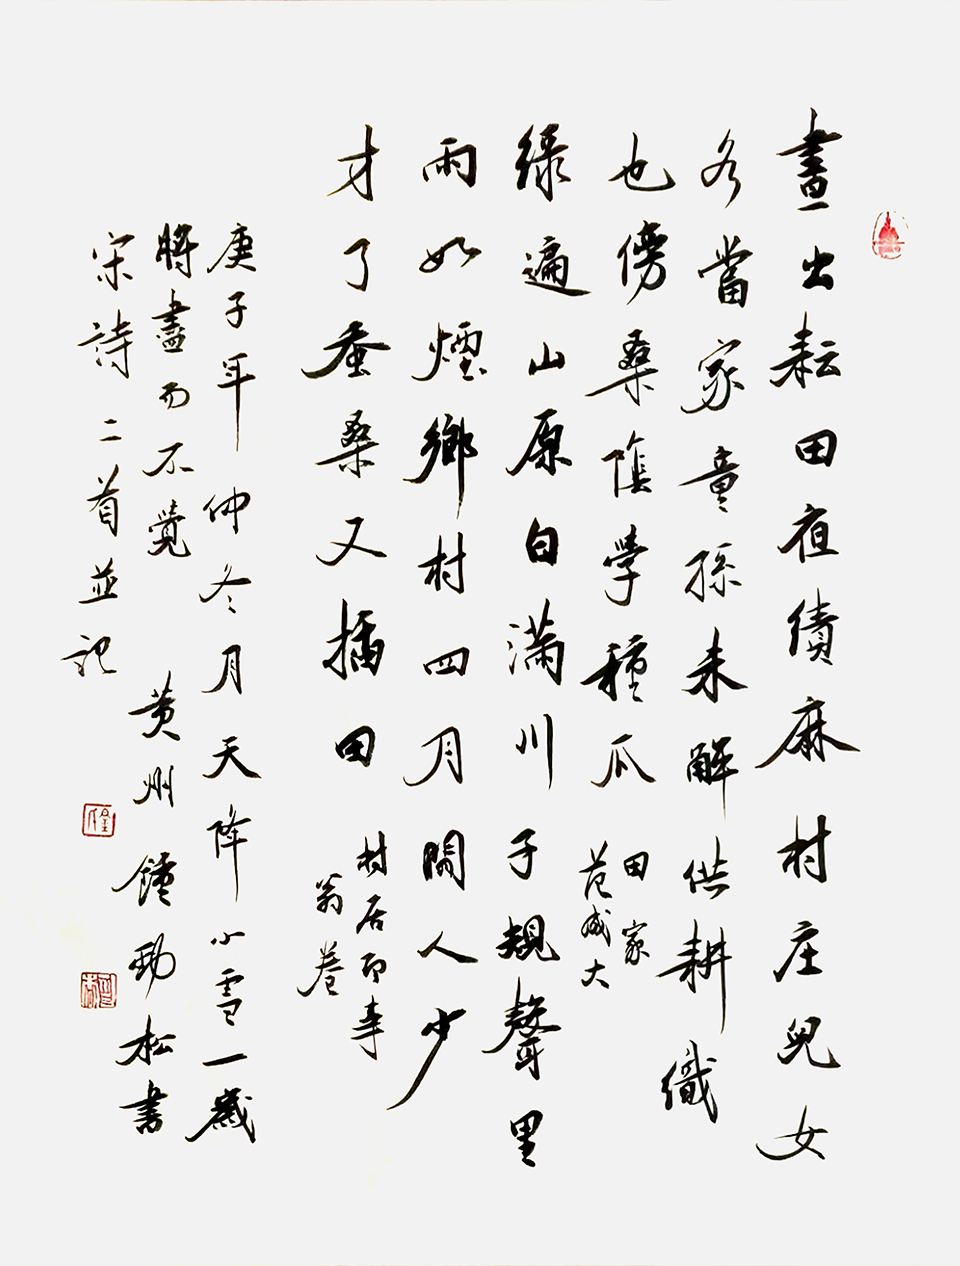 晝出耘田夜績麻村庄兒女
各當家童孫未解供耕織
也傍桑陰學種瓜
田家
范成大
綠遍山原白滿川子規聲里
雨如煙鄉村四月閒人少
才了蚕桑又插田
村居即事
翁卷
庚子年仲冬月天降小雪一歲
將盡而不覺
黄州鍾勁松書
宋詩二首並記